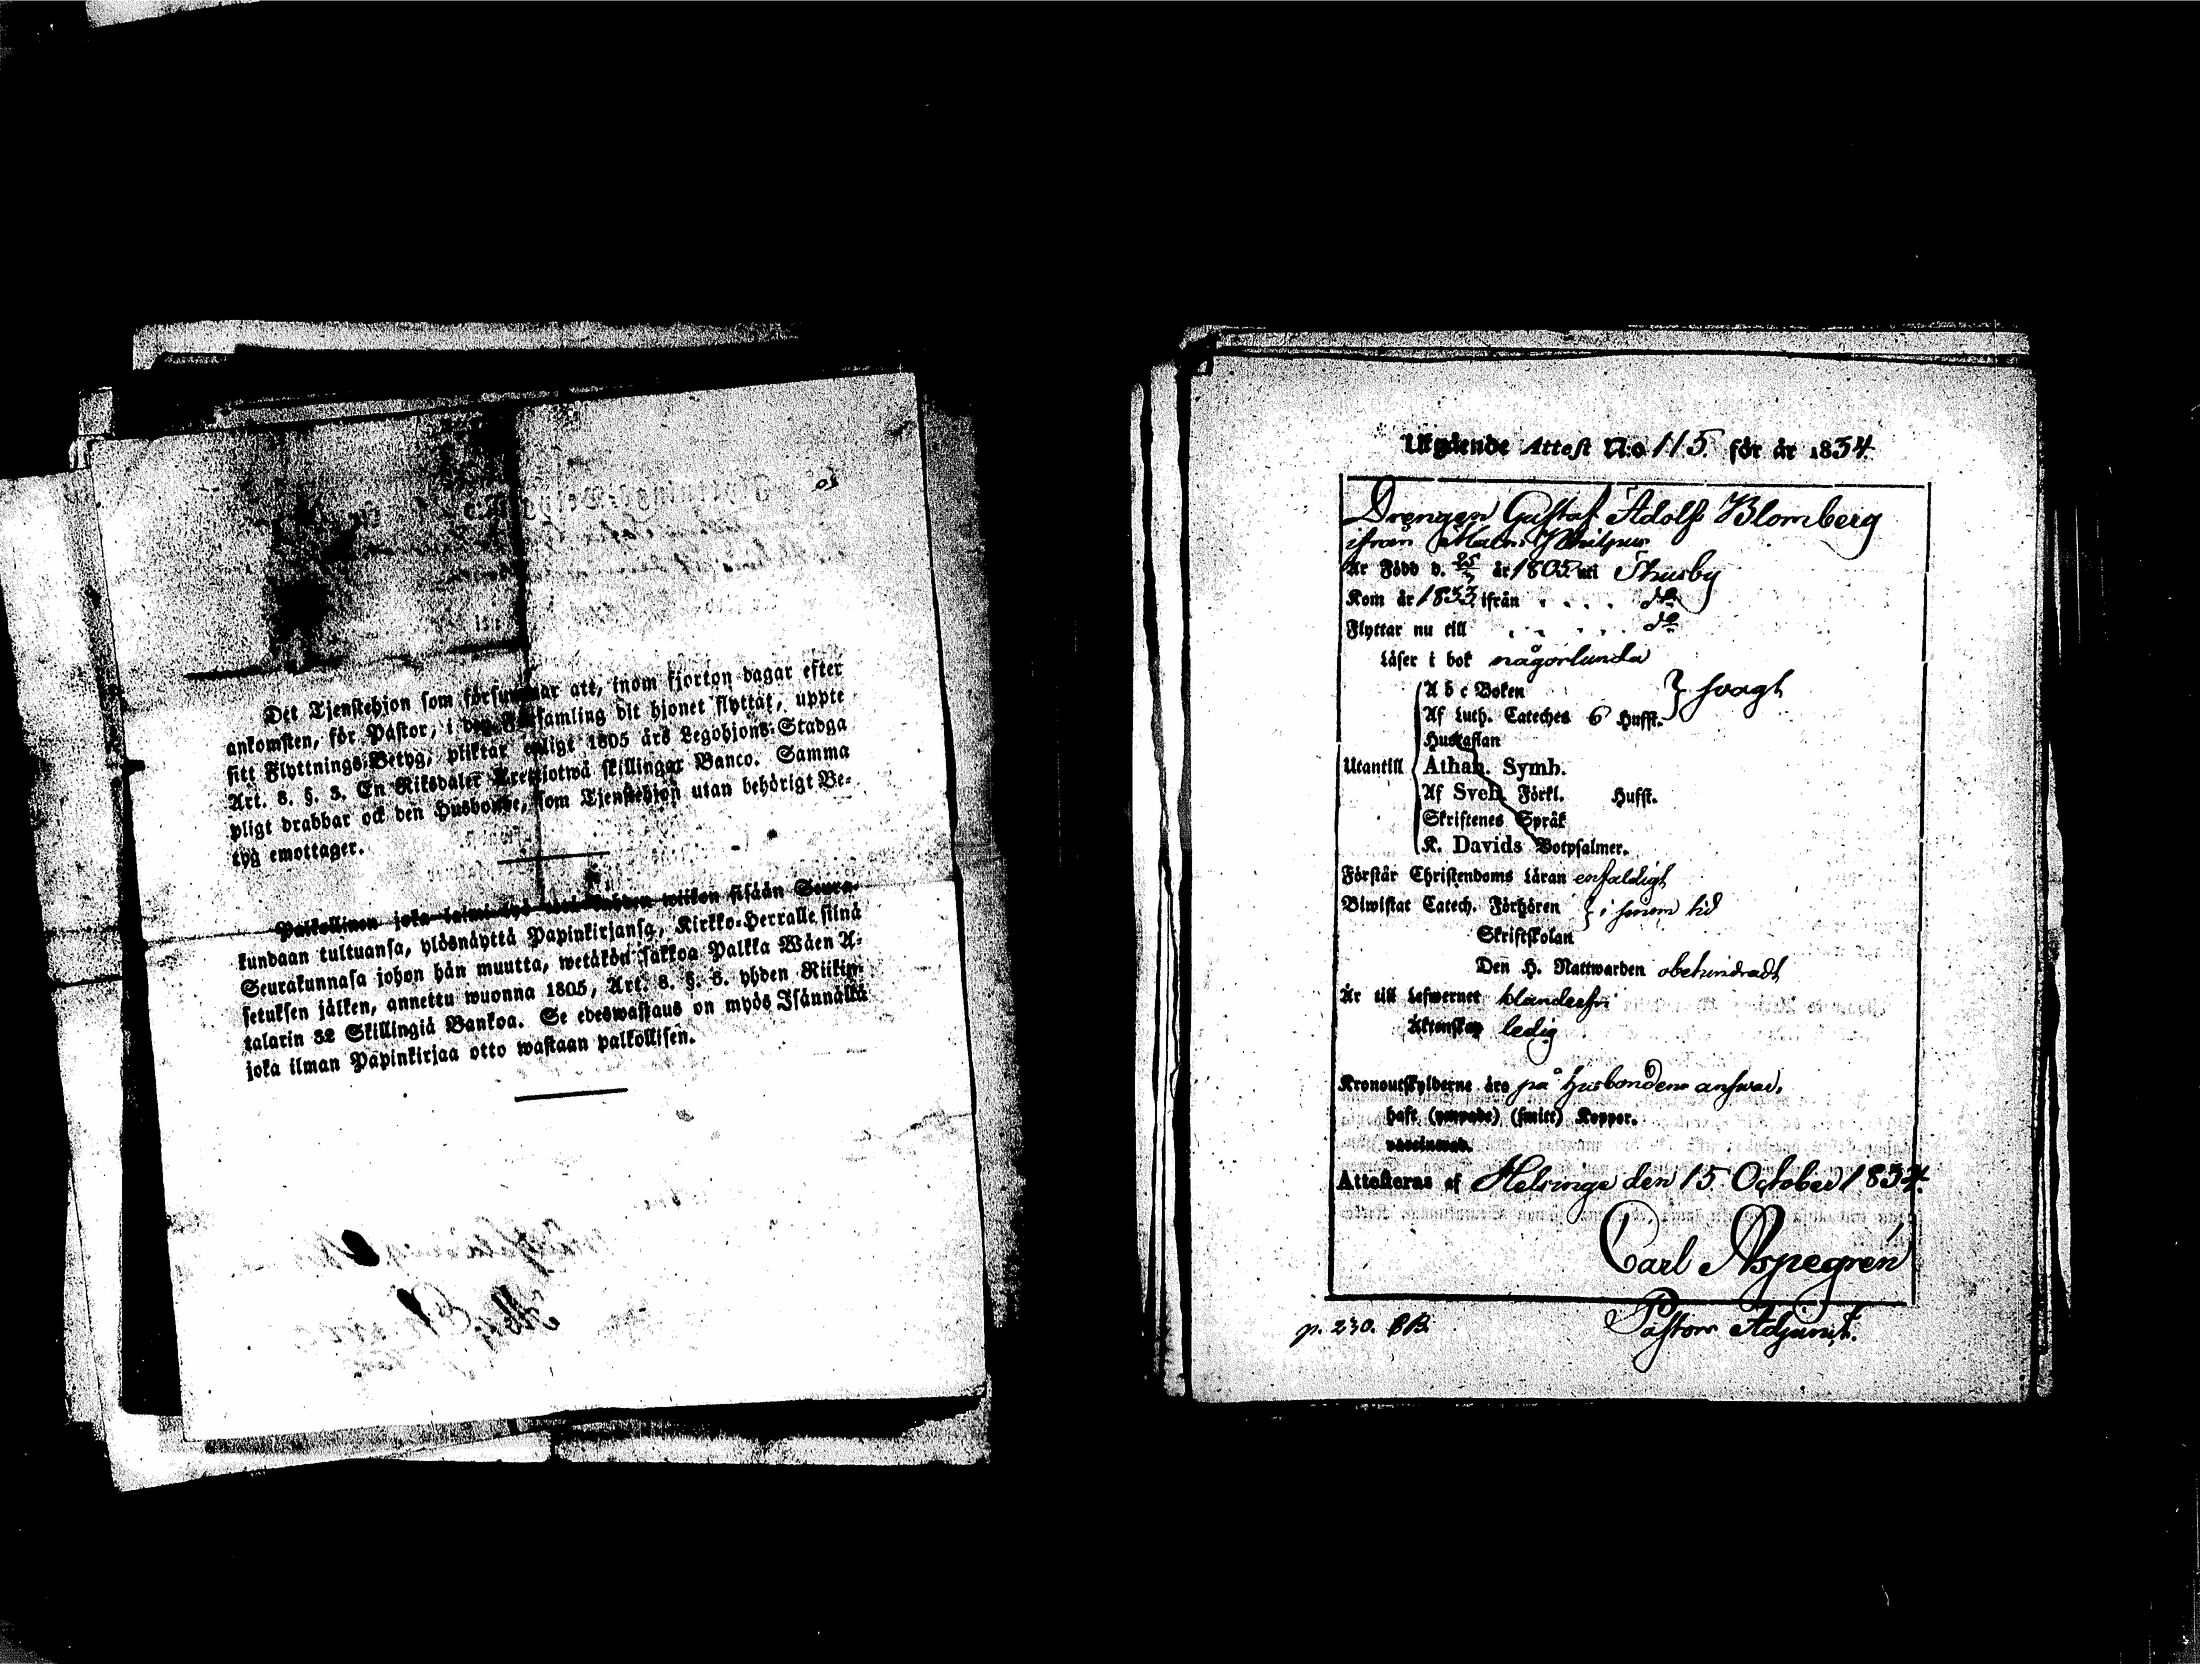 Det Tjenstehjon som försummar att, inom fjorton dagar efter
ankomsten, för Pastor, i den församling dit hjonet flyttat, uppte
sitt Flyttnings-Betyg, pliktar enligt 1805 års Legohjons-Stadga
Art. 8. §. 3. En Riksdaler Trettiotwå skillingar Banco. Samma
pligt drabbar ock den Husbonde, som Tjenstehjon utan behörigt Be-
tyg emottager.
Palkollinen joka wiikon sisään Seura-
kundaan tultuansa, ylösnäyttä Papinkirjansa, Kirkko-Herralle siinä
Seurakunnasa johon hän muutta, wetäkön sakkoa Palkka Wäen A-
setuksen jälken, annettu wuonna 1805, Art. 8. §. 3. yhden Riikin-
talarin 32 Skillingiä Bankoa. Se edeswastaus on myös Isännällä
joka ilman Papinkirjaa otto wastaan palkollisen.
Utgående Attest N:o 115 för år 1834.
Drengen Gustaf Adolf Blomberg
ifrån Malm
Är Född d. 25/7 år 1805 uti Thusby
Kom år 1833 ifrån . . . . do
Flyttar nu till . . . . . do
Läser i bok någorlunda
A b c Boken } svagt
Af Luth. Cateches 6 Hufst.
Hustaflan
Utantill Athan. Symb.
Af Sveb. Förkl. Hufst.
Skriftenes Språk
K. Davids Botpsalmer.
Förstår Christendoms Läran enfaldigt
Biwistat Catech. Förhören } i sinom tid
Skriftskolan
Den H. Nattwarden obehindradt
Är till Lefwernet klanderfri
Äktenskap ledig
Kronoutskylderne äro på Husbondens answar.
haft (ympade) (smitt) Koppor.
vaccinerad.
Attesteras af Helsinge den 15 October 1834.
Carl Aspegrén
Pastors Adjunct.
p. 230. BB.